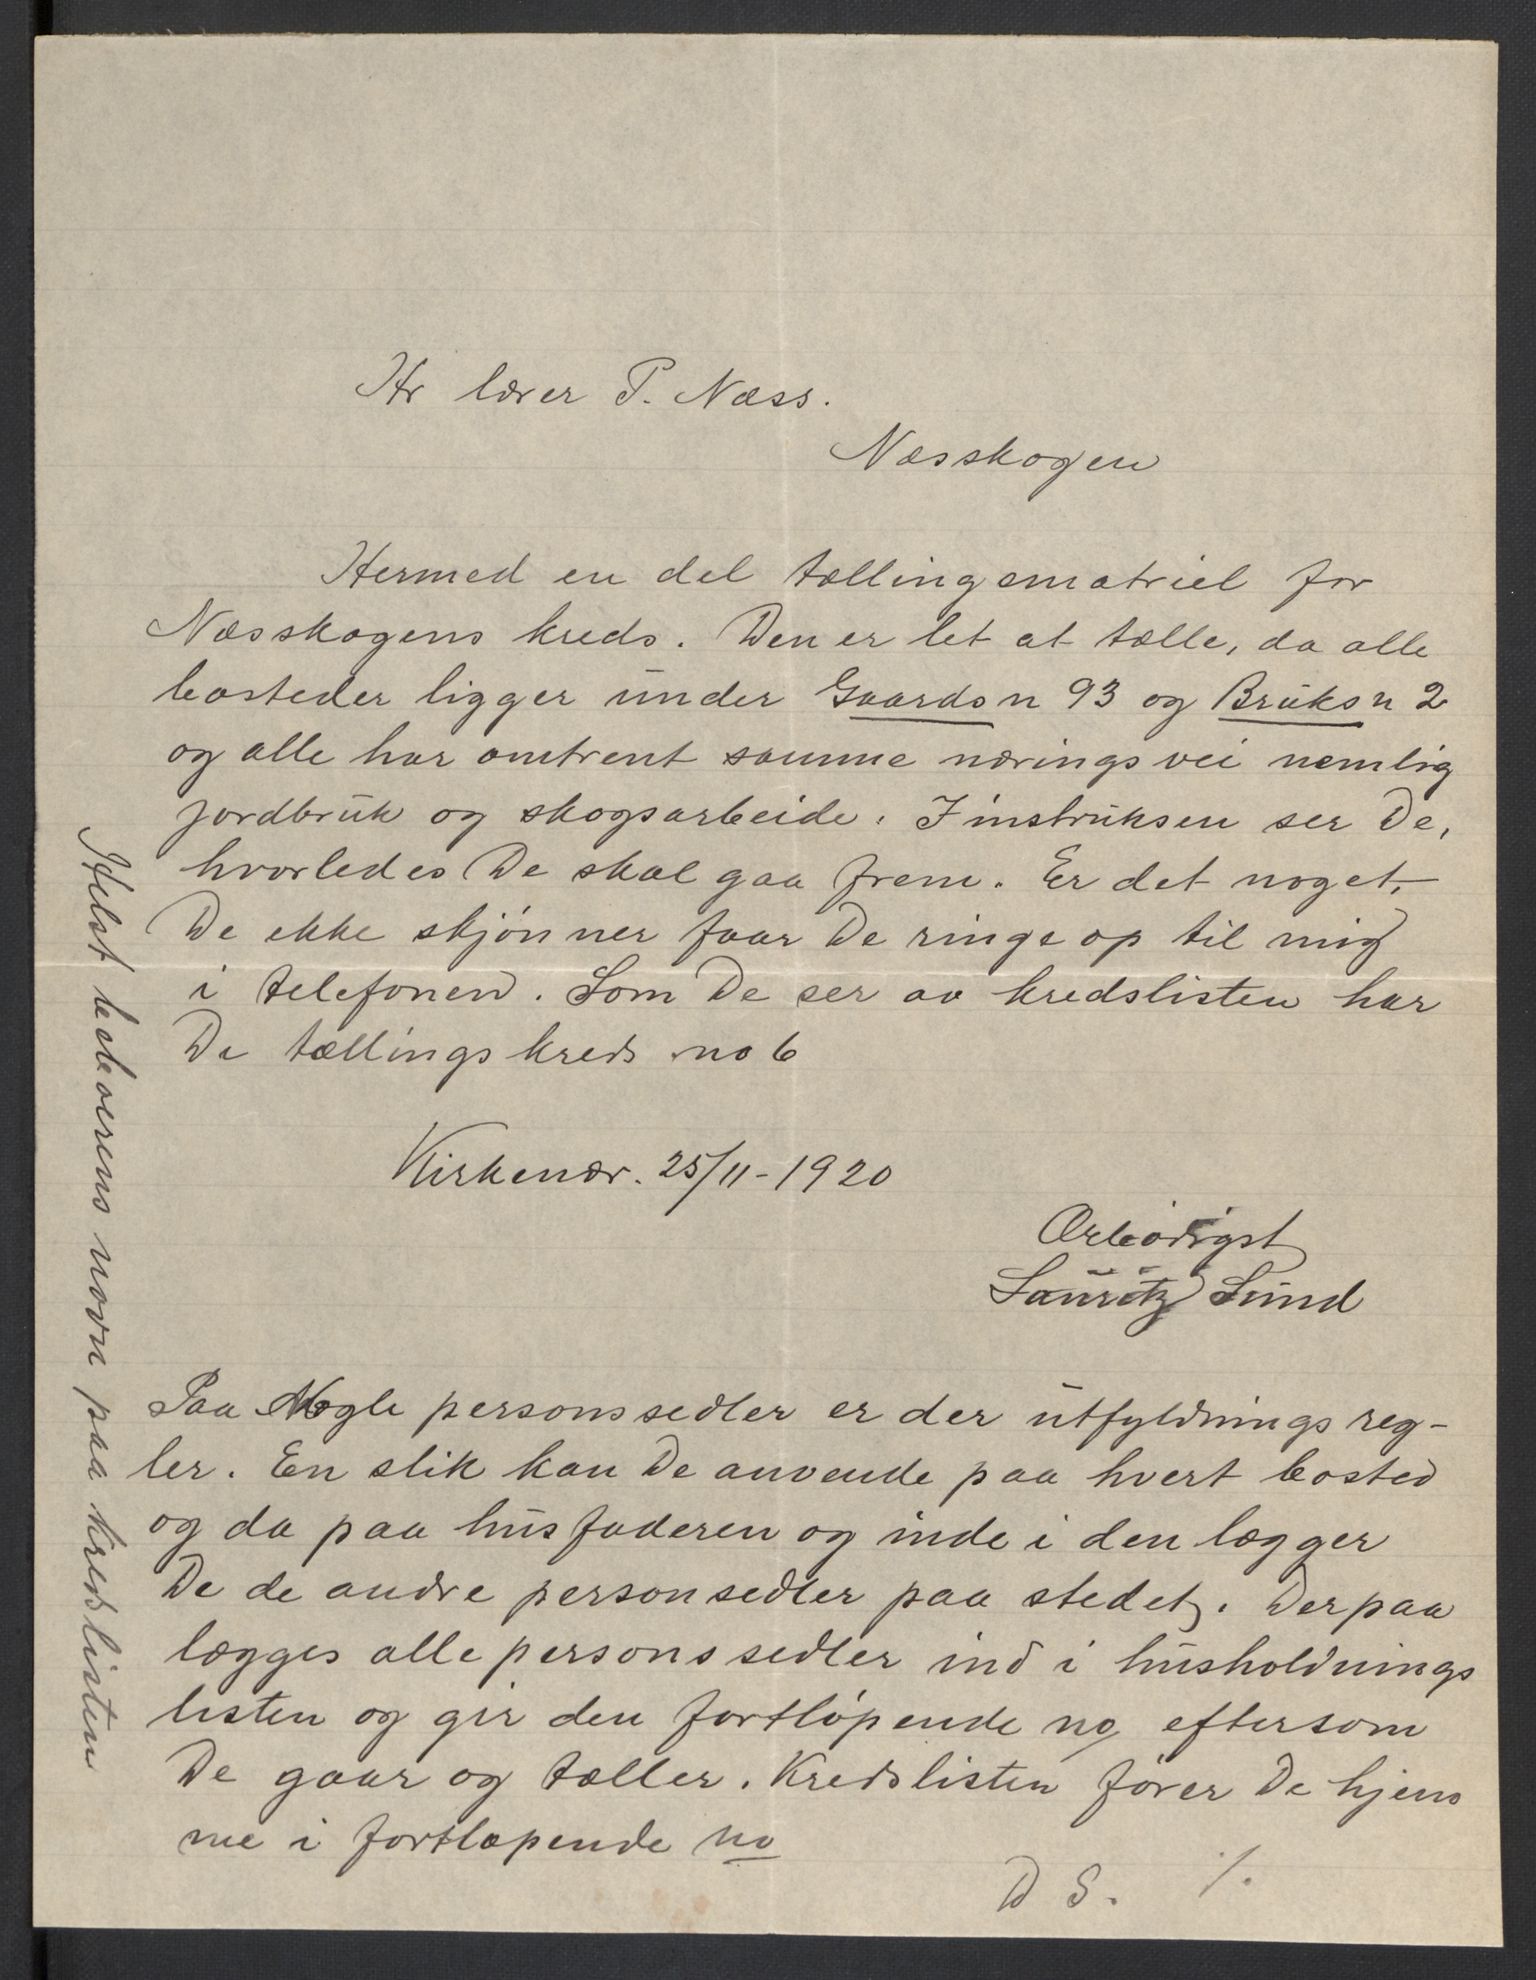 Hr lærer P. Næss.
Næsskogen
Hermed en del tællingsmatriel for
Næsskogens kreds. Den er let at tælle, da alle
bosteder ligger under Gaards n 93 og Bruks n 2
og alle har omtrent samme næringsvei nemlig
jordbruk og skogsarbeide. I instruksen ser De,
hvorledes De skal gaa frem. Er det noget,
De ikke skjønner faar De ringe op til mig
i telefonen. Som De ser av kredslisten har
De tællingskreds no 6
Kirkenær. 25/11-1920
Ærbødigst
Lauritz Lund
Paa Nogle personssedler er der utfyldningsreg-
ler. En slik kan De anvende paa hvert bosted
og da paa husfaderen og inde i den lægger
De de andre personsedler paa stedet. Derpaa
lægges alle personssedler ind i husholdnings
listen og gir den fortløpende no eftersom
De gaar og tæller. Kredslisten fører De hjem
me i fortløpende no
D S. ./.
Helst beboerens navn paa kredslisten